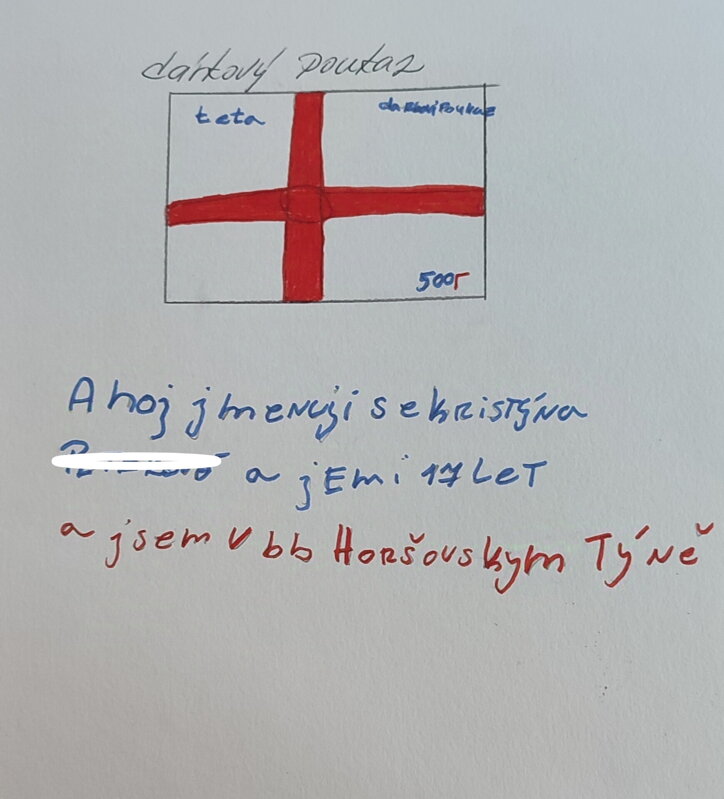 dárkový poukaz
teta
darkovi Poukaz
500
Ahoj jmenuji se kRistýNa
a jEmi 17 LeT
a jsem V bb Horšovskym Týně